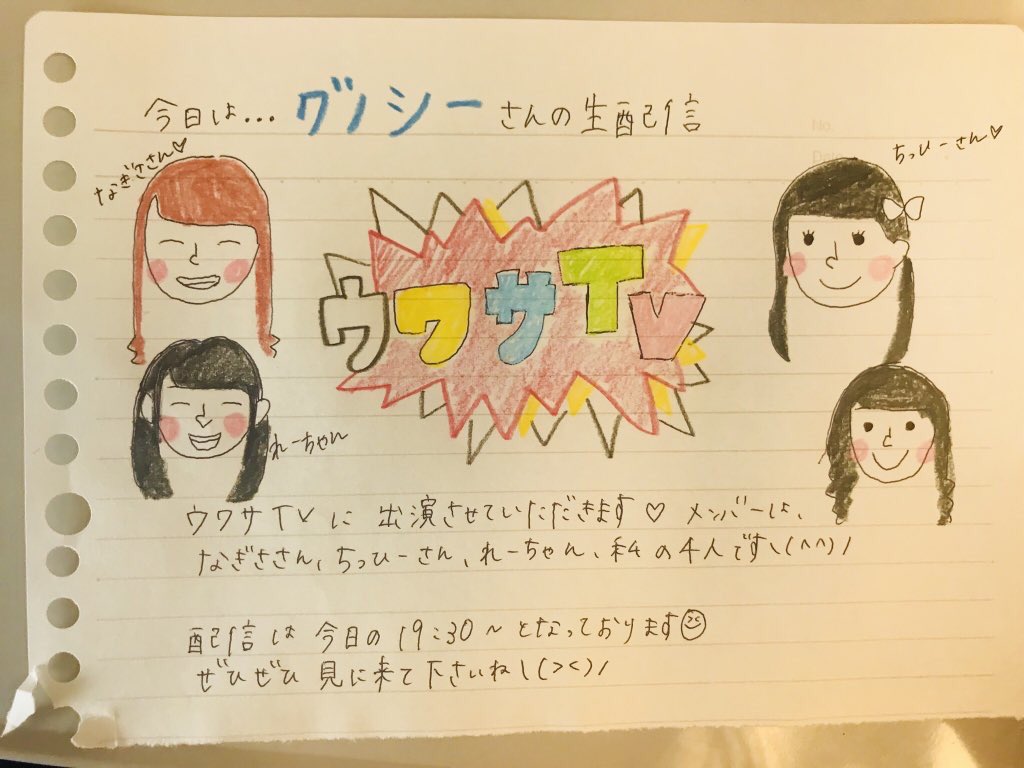 今日は... グノシーさんの生配信
なぎささん♡
ちっひーさん♡
ウワサTV
れーちゃん
ウワサTVに 出演させていただきます♡ メンバーは、
なぎささん、ちっひーさん、れーちゃん、私の4人です\(^^)/
配信は 今日の19:30~となっております
ぜひぜひ 見に来て下さいね\(><)/